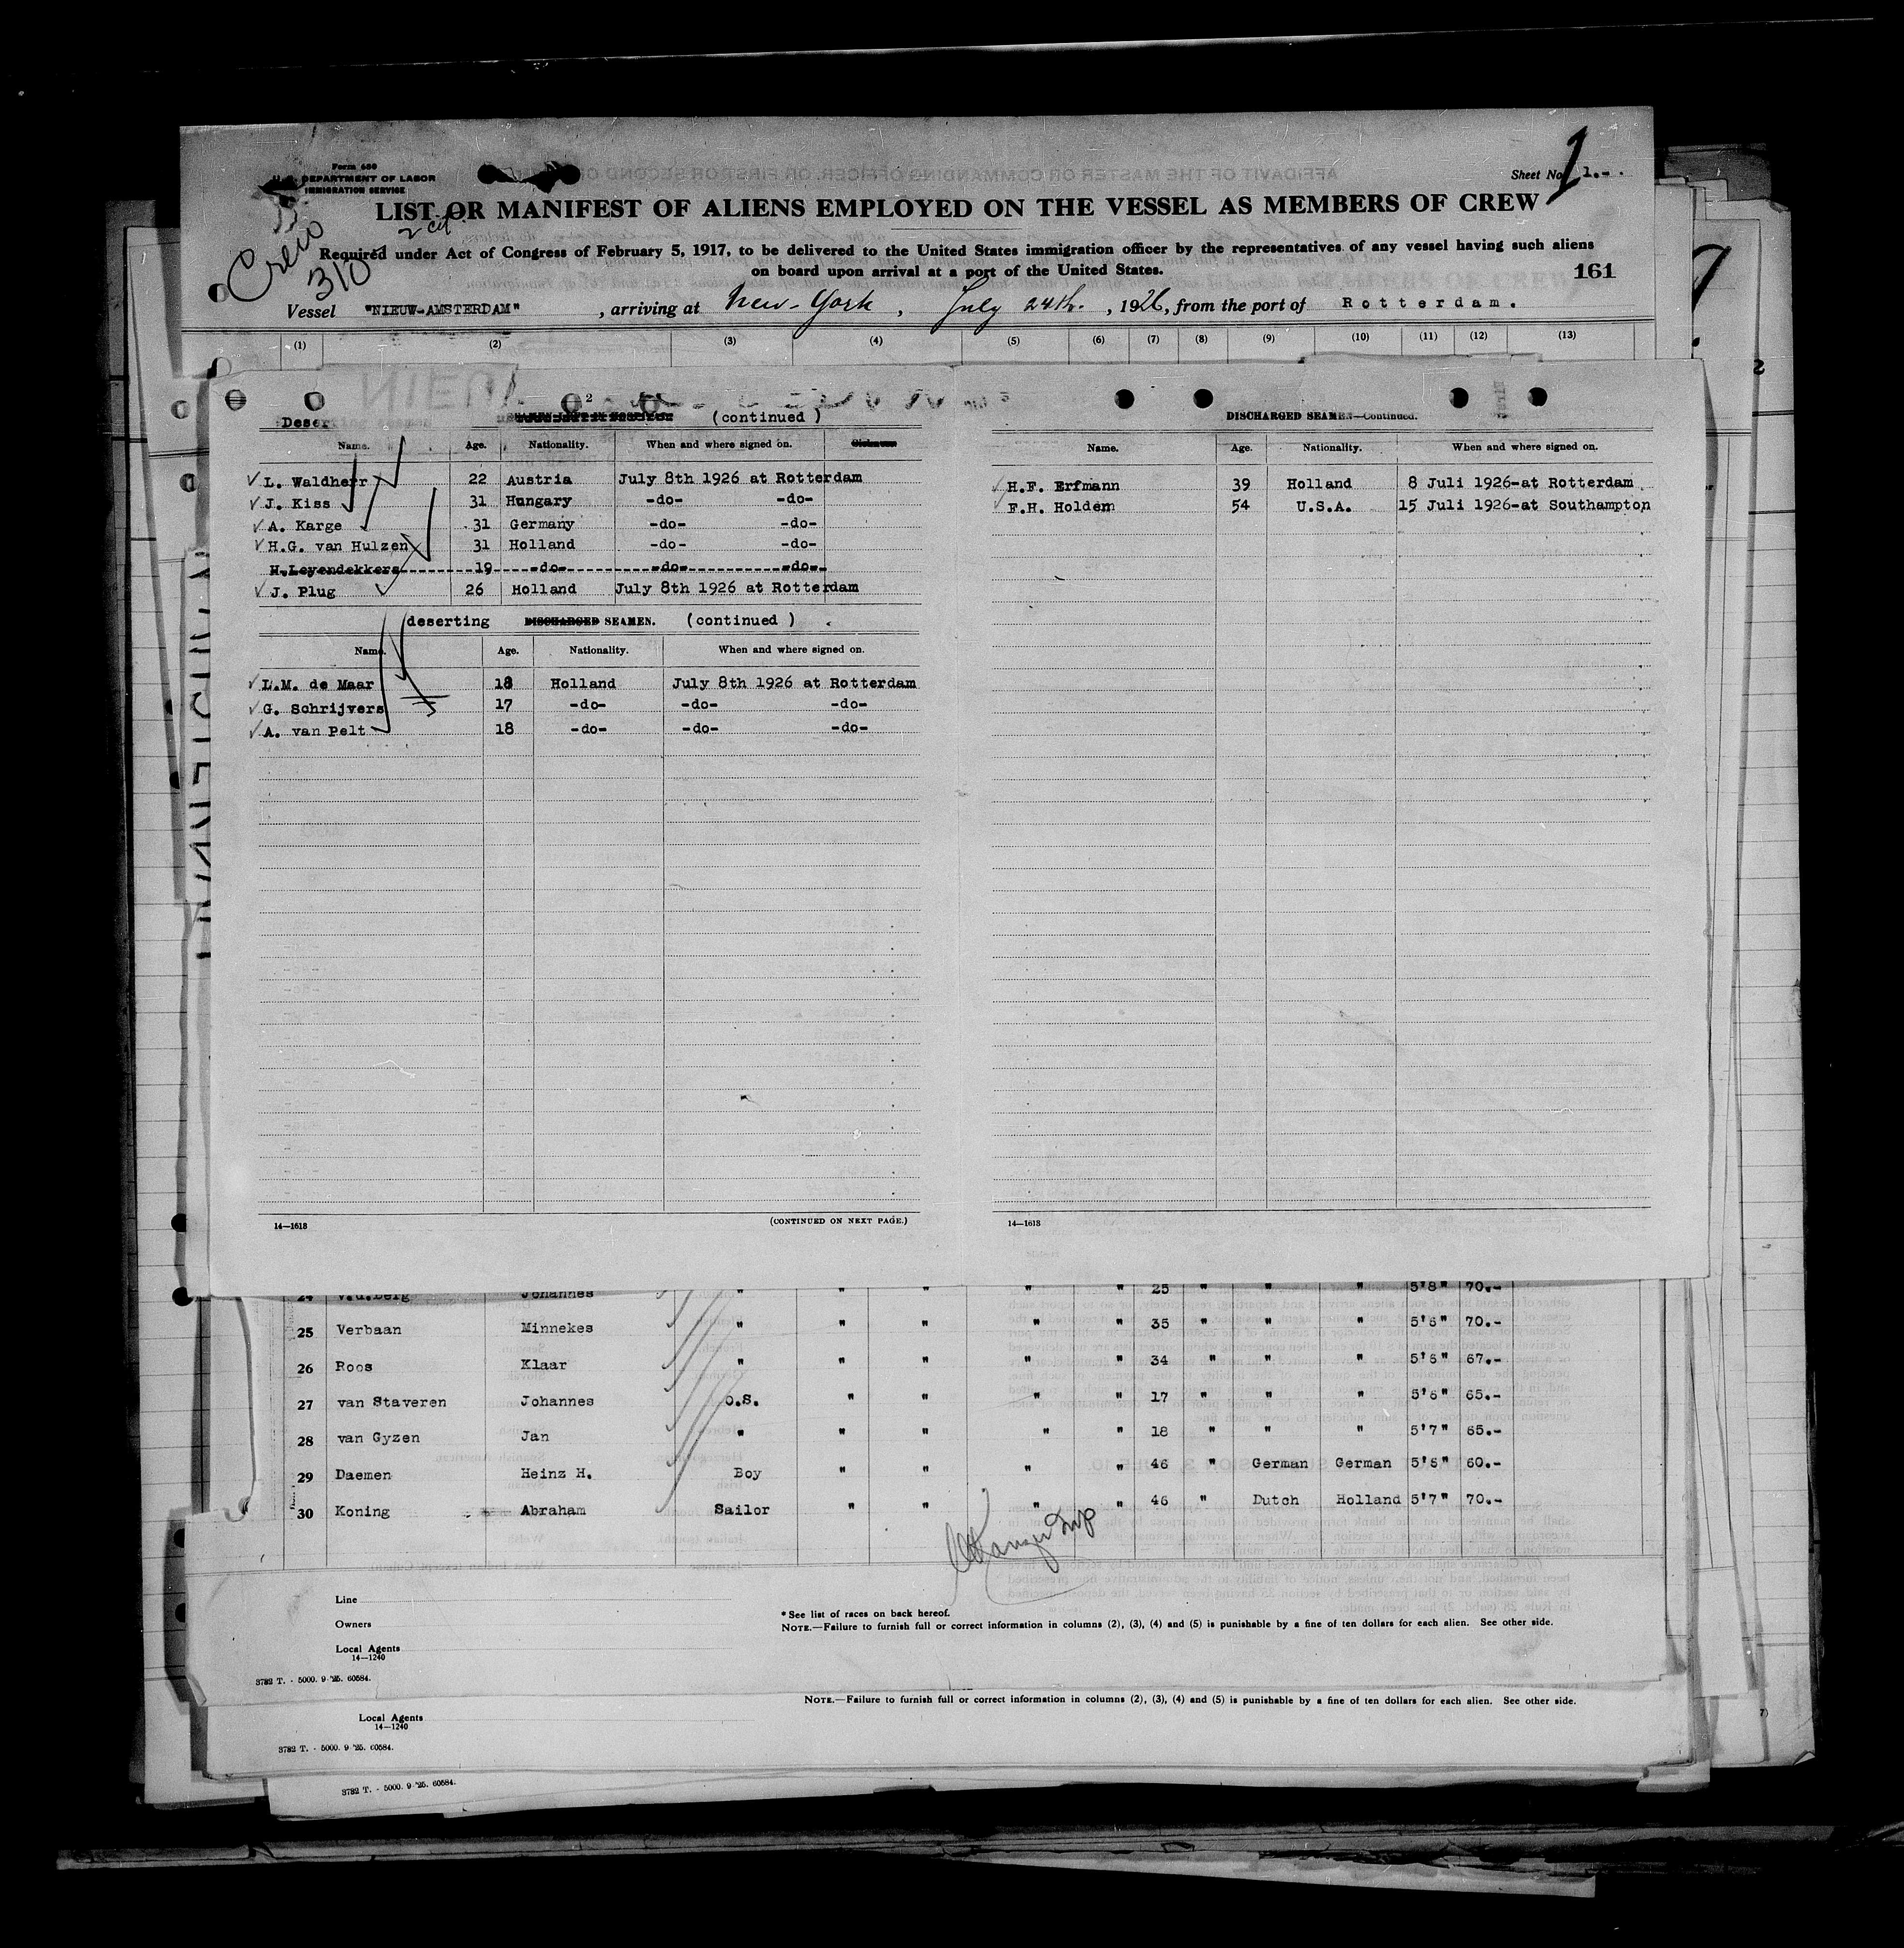 Form 680
U. S. DEPARTMENT OF LABOR
IMMIGRATION SERVICE
Sheet No. 1.-
1
LIST OR MANIFEST OF ALIENS EMPLOYED ON THE VESSEL AS MEMBERS OF CREW
Crew
310
Required under Act of Congress of February 5, 1917, to be delivered to the United States immigration officer by the representatives of any vessel having such aliens
on board upon arrival at a port of the United States.
161
Vessel "NIEUW-AMSTERDAM", arriving at New-York, July 24th., 1926, from the port of Rotterdam.
(1) (2) (3) (4) (5) (6) (7) (8) (9) (10) (11) (12) (13)
2
Deserting Seamen (continued)
Name. Age. Nationality. When and where signed on.
L. Waldherr 22 Austria July 8th 1926 at Rotterdam
J. Kiss 31 Hungary -do- -do-
A. Karge 31 Germany -do- -do-
H.G. van Hulzen 31 Holland -do- -do-
H.Leyendekkers 19 -do- -do- -do-
J. Plug 26 Holland July 8th 1926 at Rotterdam
deserting DISCHARGED SEAMEN. (continued)
Name. Age. Nationality. When and where signed on.
L.M. de Maar 18 Holland July 8th 1926 at Rotterdam
G. Schrijvers 17 -do- -do- -do-
A. van Pelt 18 -do- -do- -do-
14—1613 (CONTINUED ON NEXT PAGE.)
DISCHARGED SEAMEN—Continued.
Name. Age. Nationality. When and where signed on.
H.F. Erfmann 39 Holland 8 Juli 1926-at Rotterdam
F.H. Holdem 54 U.S.A. 15 Juli 1926-at Southampton
14—1613
24 v.d.Berg Johannes " " " " " 25 " " " 5'8" 70.-
25 Verbaan Minnekes " " " " " 35 " " " 5'6" 70.-
26 Roos Klaar " " " " " 34 " " " 5'6" 67.-
27 van Staveren Johannes O.S. " " " " 17 " " " 5'6" 65.-
28 van Gyzen Jan " " " " " 18 " " " 5'7" 65.-
29 Daemen Heinz H. Boy " " " " 46 " German German 5'6" 60.-
30 Koning Abraham Sailor " " " " 46 " Dutch Holland 5'7" 70.-
Line
Owners
Local Agents
14—1240
3782 T. - 5000. 9-'25. 60584.
* See list of races on back hereof.
NOTE.—Failure to furnish full or correct information in columns (2), (3), (4) and (5) is punishable by a fine of ten dollars for each alien. See other side.
NOTE.—Failure to furnish full or correct information in columns (2), (3), (4) and (5) is punishable by a fine of ten dollars for each alien. See other side.
Local Agents
14—1240
3782 T. - 5000. 9-'25. 60584.
3782 T. - 5000. 9-'25. 60584.